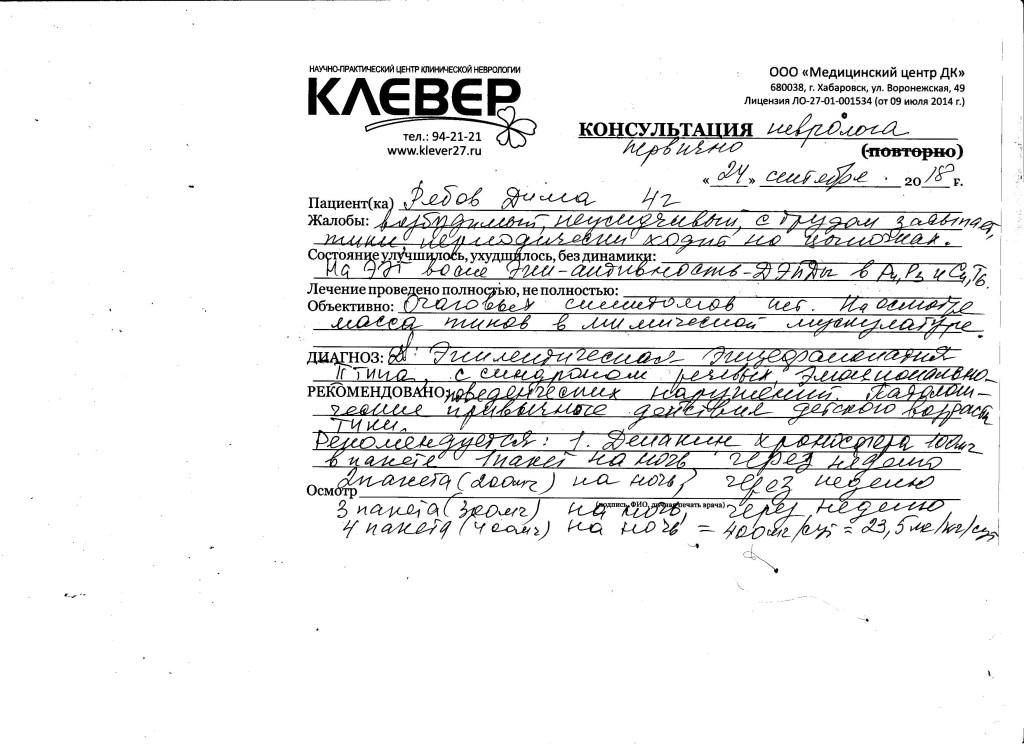 НАУЧНО-ПРАКТИЧЕСКИЙ ЦЕНТР КЛИНИЧЕСКОЙ НЕВРОЛОГИИ
КЛЕВЕР
тел.: 94-21-21
www.klever27.ru
ООО «Медицинский центр ДК»
680038, г. Хабаровск, ул. Воронежская, 49
Лицензия ЛО-27-01-001534 (от 09 июля 2014 г.)
КОНСУЛЬТАЦИЯ невролога
первично (повторно)
«24» сентября 2018 г.
Пациент(ка) Дима 4г
Жалобы: возбудимый, неусидчивый, с трудом засыпает,
тики, периодически ходит на цыпочках.
Состояние улучшилось, ухудшилось, без динамики:
На ЭЭГ после эпи-активность-ДЭПДы в P4, P3 и C4, T6.
Лечение проведено полностью, не полностью:
Объективно: Очаговых симптомов нет. На осмотре
масса тиков в мимической мускулатуре.
ДИАГНОЗ: Д: Эпилептическая энцефалопатия
II типа, с синдромом речевых, эмоционально-
РЕКОМЕНДОВАНО: поведенческих нарушений. Патологи-
ческие привычные действия детского возраста
тики.
Рекомендуется: 1. Депакин хроносфера 100мг
в пакете 1 пакет на ночь, через неделю
2 пакета (200мг) на ночь, через неделю
Осмотр
(подпись, ФИО, личная печать врача)
3 пакета (300мг) на ночь, через неделю
4 пакета (400мг) на ночь = 400мг/сут = 23,5мг/кг/сут